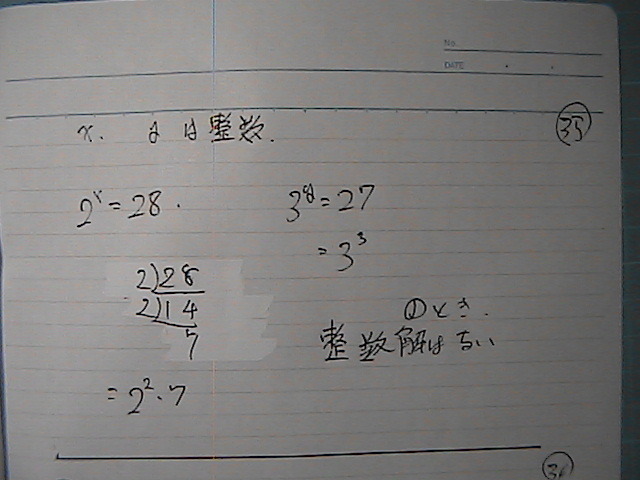 No.
DATE
x, yは整数. ㉟
2^x = 28.
3^y = 27
= 3^3
2)28
2)14
7
= 2^2・7
①とき.
整数解はない